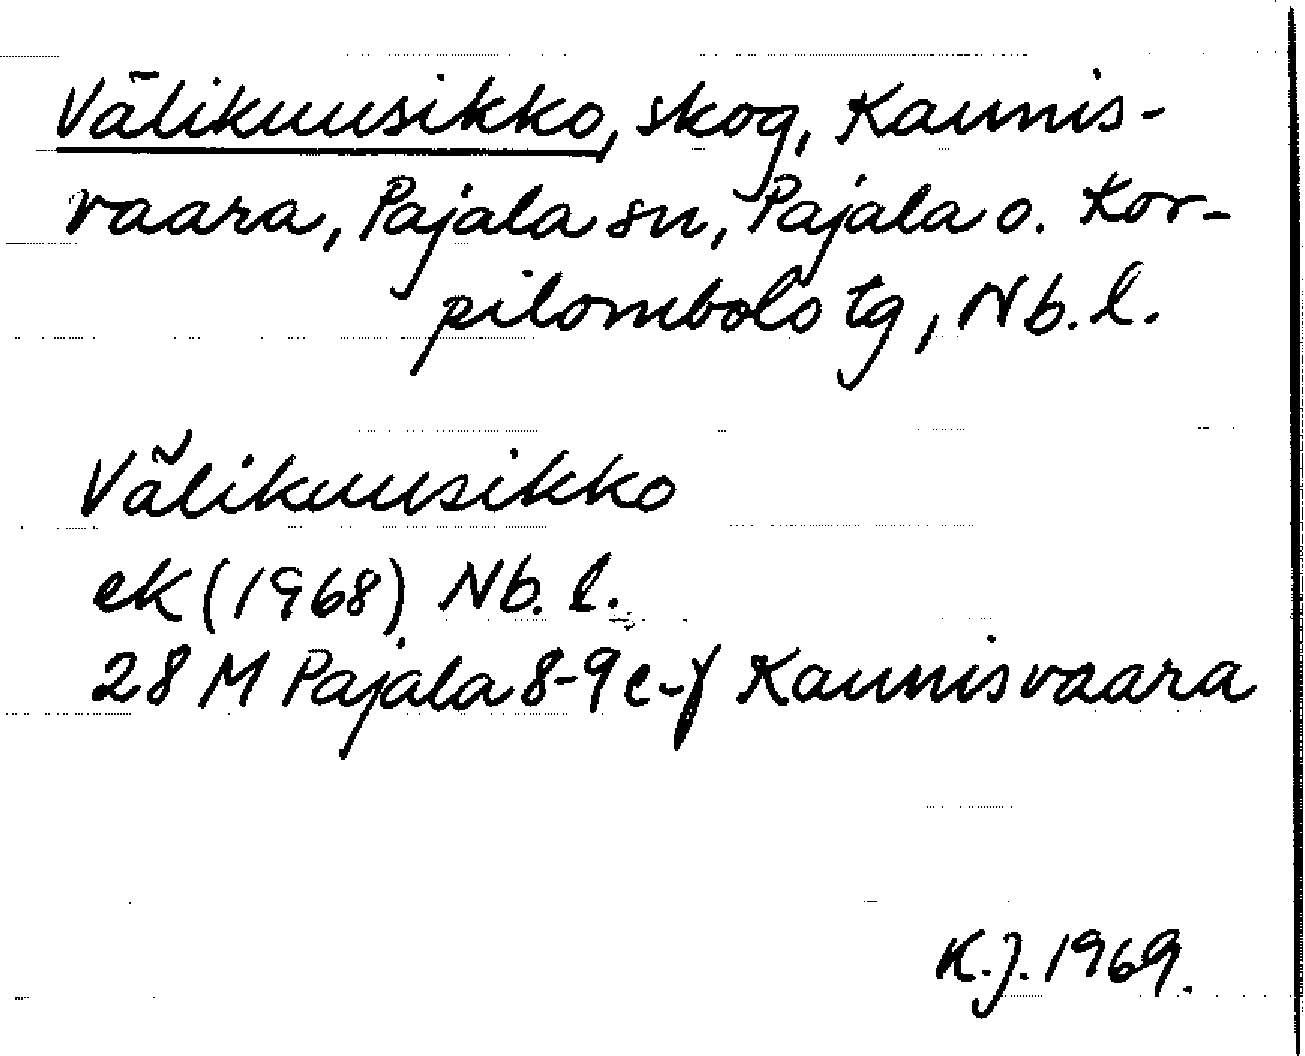 Välikuusikko, skog, Kaunis-
vaara, Pajala sn, Pajala o. Kor-
pilombolo tg, Nb. l.
Välikuusikko
ek (1968) Nb. l.
28 M Pajala 8-9 e-f Kaunisvaara
K.J. 1969.